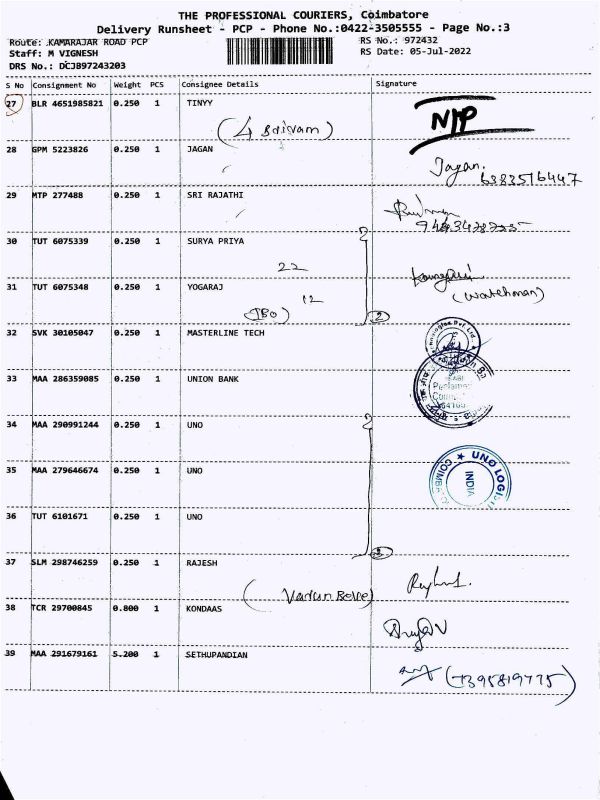 THE PROFESSIONAL COURIERS, Coimbatore
Delivery Runsheet - PCP - Phone No.:0422-3505555 - Page No.:3
Route: KAMARAJAR ROAD PCP RS No.: 972432
Staff: M VIGNESH RS Date: 05-Jul-2022
DRS No.: DCJB97243203
S No Consignment No Weight PCS Consignee Details Signature
27 BLR 4651985821 0.250 1 TINYY
(4 Sriram)
28 GPM 5223826 0.250 1 JAGAN
Jagan.
6383516447
29 MTP 277488 0.250 1 SRI RAJATHI
30 TUT 6075339 0.250 1 SURYA PRIYA
22
31 TUT 6075348 0.250 1 YOGARAJ
12
(watchman)
2
32 SVK 30105047 0.250 1 MASTERLINE TECH
33 MAA 286359085 0.250 1 UNION BANK
34 MAA 290991244 0.250 1 UNO
35 MAA 279646674 0.250 1 UNO
UNO LOGI
INDIA
36 TUT 6101671 0.250 1 UNO
3
37 SLM 298746259 0.250 1 RAJESH
38 TCR 29700845 0.800 1 KONDAAS
39 MAA 291679161 5.200 1 SETHUPANDIAN
(7395819775)